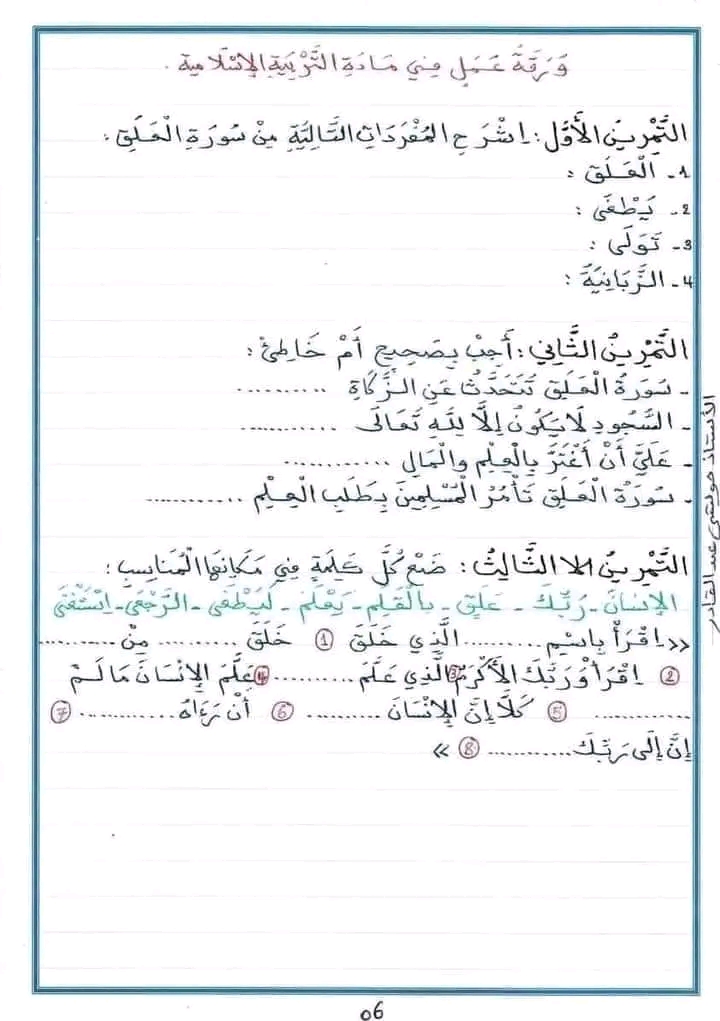 وَرَقَةُ عَمَلٍ فِي مَادَةِ التَّرْبِيَةِ الإِسْلَامِيَةِ .
التَّمْرِينُ الأَوَّلُ : اِشْرَحِ المُفْرَدَاتِ التَّالِيَّةِ مِنْ سُورَةِ الْعَلَقِ :
1- الْعَلَقَ :
2- يَطْغَى :
3- تَوَلَى :
4- الزَّبَانِيَةُ :
التَّمْرِينُ الثَّانِي : أَجِبْ بِصَحِيحٍ أَمْ خَاطِئْ :
- سُورَةُ الْعَلَقِ تَتَحَدَّثُ عَنِ الزَّكَاةِ ..........
- السُّجُودِ لَا يَكُونُ إِلَّا لِلَّهِ تَعَالَى ............
- عَلَيَّ أَنْ أَغْتَرَّ بِالْعِلْمِ والْمَالِ ............
- سُورَةُ الْعَلَقِ تَأْمُرُ الْمُسْلِمِينَ بِطَلَبِ الْعِلْمِ ............
التَّمْرِينُ الا الثَّالِثُ : ضَعْ كُلَّ كَلِمَةٍ فِي مَكَانِهَا الْمُنَاسِبِ :
الإِنسَانَ - رَبِّكَ - عَلَقٍ - بِالْقَلَمِ - يَعْلَمْ - لَيَطْغَى - الرُّجْعَى - اسْتَغْنَى
«اِقْرَأْ بِاسْمِ .......... الَّذِي خَلَقَ ① خَلَقَ .......... مِنْ ..........
② اِقْرَأْ وَرَبُّكَ الأَكْرَمُ ③ الَّذِي عَلَّمَ .......... ④ عَلَّمَ الإِنْسَانَ مَا لَمْ
.......... ⑤ كَلَّا إِنَّ الإِنْسَانَ .......... ⑥ أَنْ رَءَاهُ .......... ⑦
إِنَّ إِلَى رَبِّكَ .......... ⑧ »
06